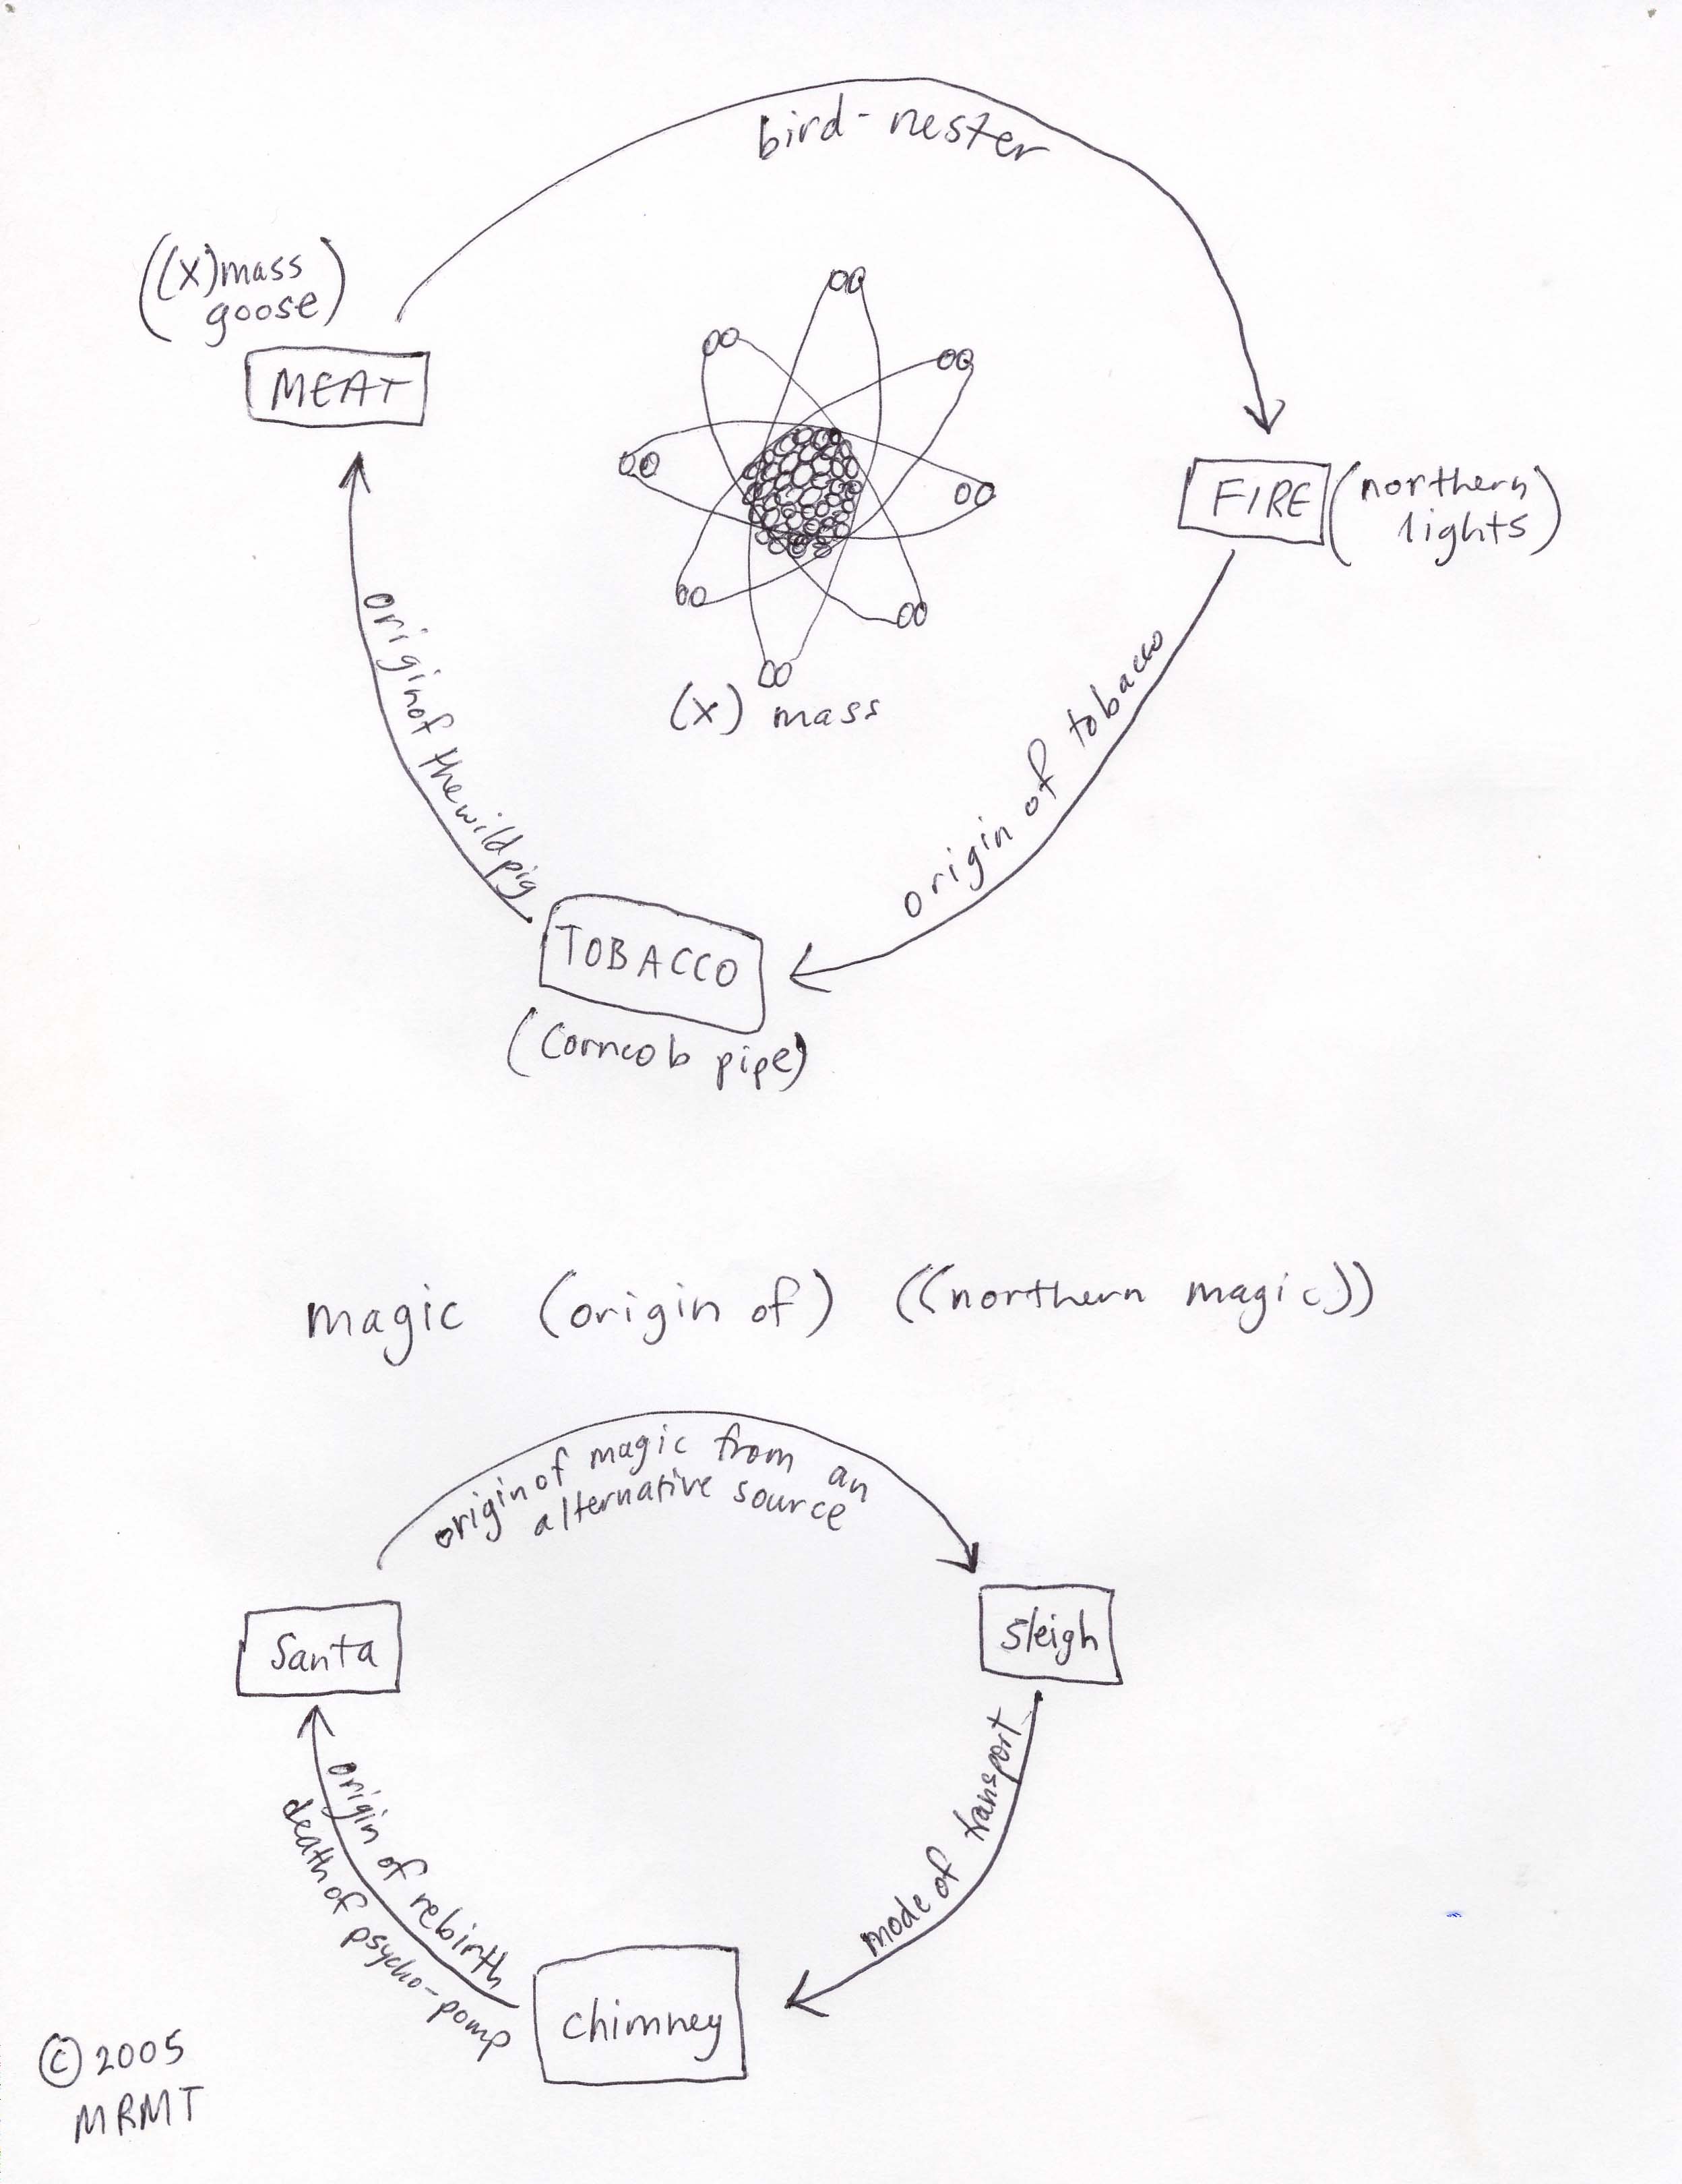 bird-nester
((X)mass
goose)
MEAT
FIRE
(northern
lights)
origin of the wild pig
(X) mass
origin of tobacco
TOBACCO
(Corncob pipe)
magic (origin of) ((northern magic))
origin of magic from an
alternative source
Santa
sleigh
mode of transport
origin of rebirth
death of psycho-pomp
chimney
© 2005
MRMT